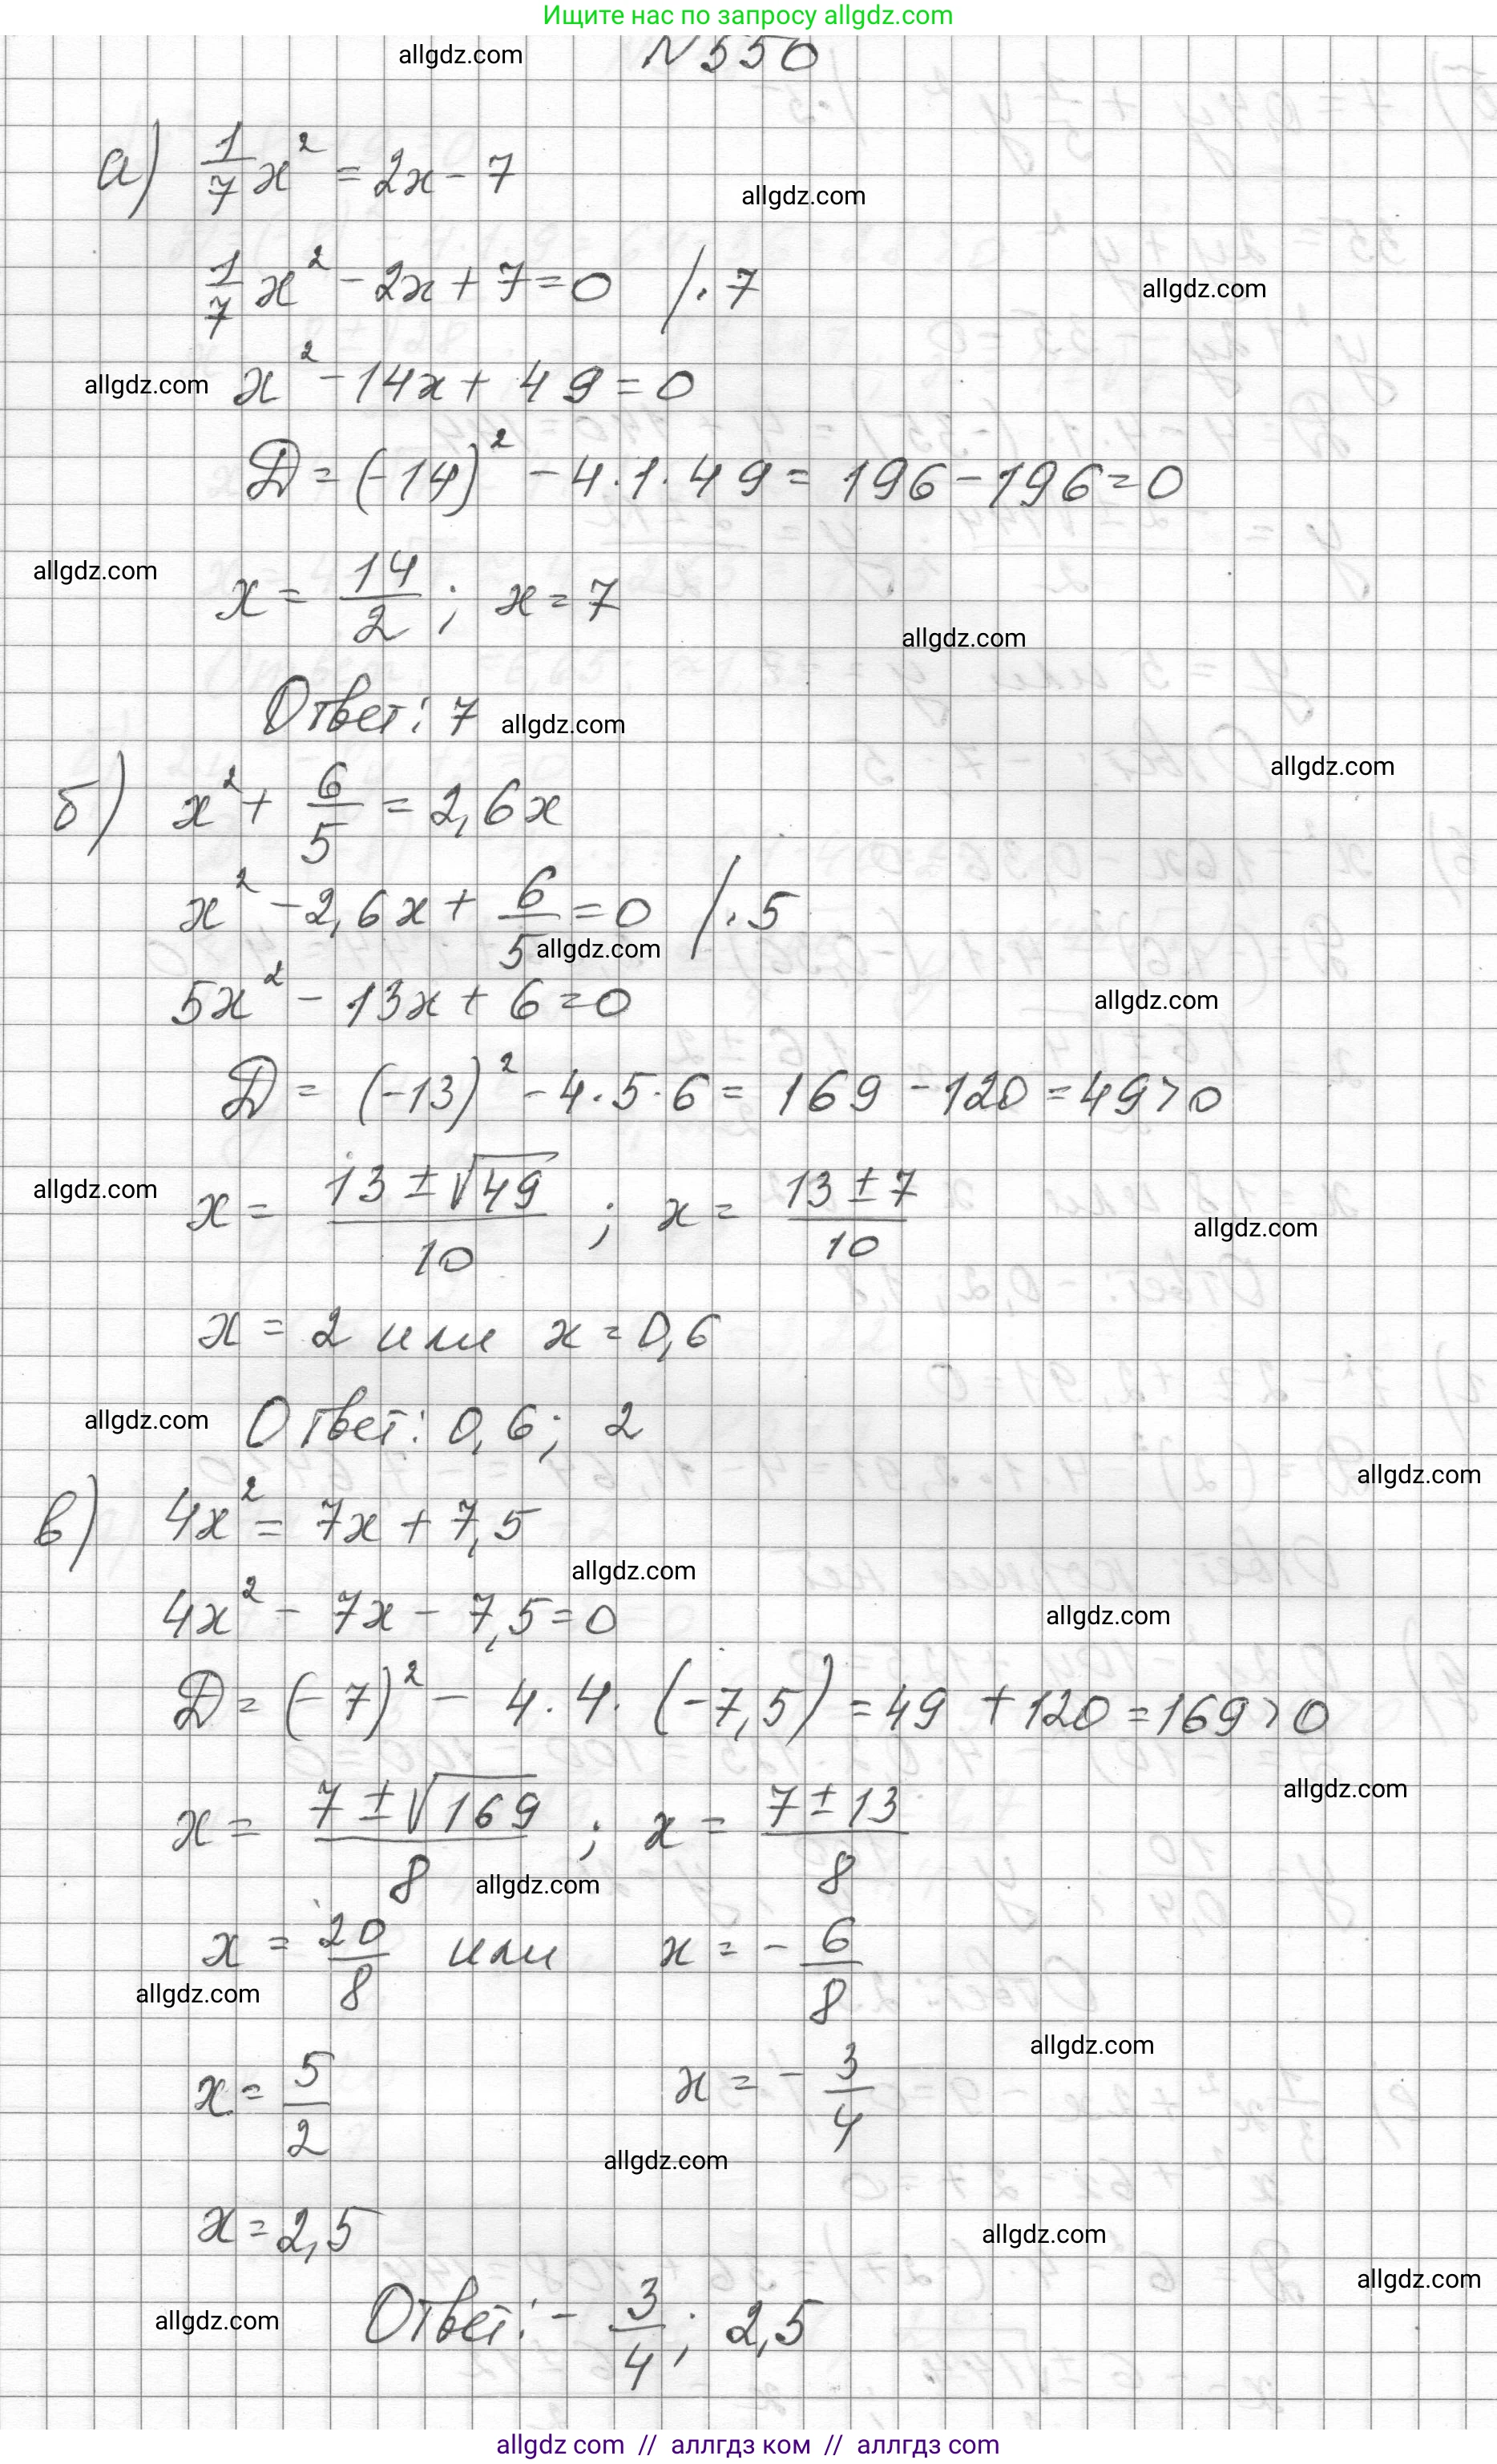 Ищите нас по запросу allgdz.com
allgdz.com N 550
а) 1/7 x² = 2x - 7
allgdz.com
1/7 x² - 2x + 7 = 0 | · 7
allgdz.com
allgdz.com x² - 14x + 49 = 0
D = (-14)² - 4·1·49 = 196 - 196 = 0
allgdz.com
x = 14/2 ; x = 7
allgdz.com
Ответ: 7 allgdz.com
allgdz.com
б) x² + 6/5 = 2,6x
x² - 2,6x + 6/5 = 0 | · 5
allgdz.com
5x² - 13x + 6 = 0
allgdz.com
D = (-13)² - 4·5·6 = 169 - 120 = 49 > 0
allgdz.com x = (13 ± √49)/10 ; x = (13 ± 7)/10
allgdz.com
x = 2 или x = 0,6
allgdz.com Ответ: 0,6; 2
allgdz.com
в) 4x² = 7x + 7,5
allgdz.com
4x² - 7x - 7,5 = 0
allgdz.com
D = (-7)² - 4·4·(-7,5) = 49 + 120 = 169 > 0
allgdz.com
x = (7 ± √169)/8 ; x = (7 ± 13)/8
allgdz.com
x = 20/8 или x = - 6/8
allgdz.com
allgdz.com
x = 5/2 x = - 3/4
allgdz.com
x = 2,5
allgdz.com
allgdz.com
allgdz.com Ответ: - 3/4; 2,5
allgdz.com // аллгдз ком // аллгдз com